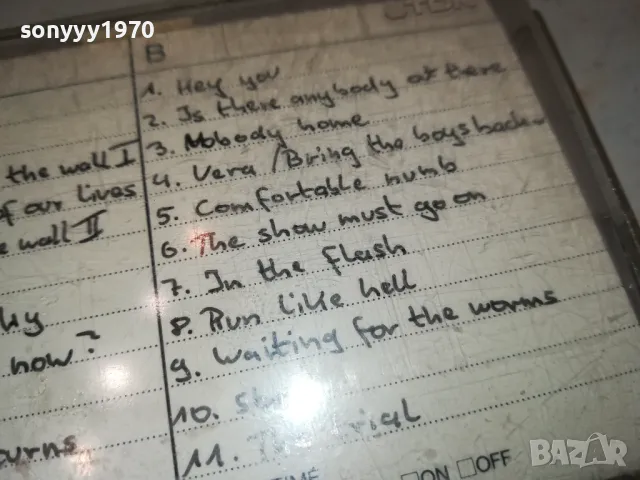 sonyyy1970
B
1. Hey you
2. Is there anybody out there
3. Nobody home
4. Vera / Bring the boys back
5. Comfortable numb
6. The show must go on
7. In the flash
8. Run like hell
9. Waiting for the worms
10.
11. trial
the wall I
of our lives
wall II
now?
TIME
ON OFF
BAZAR